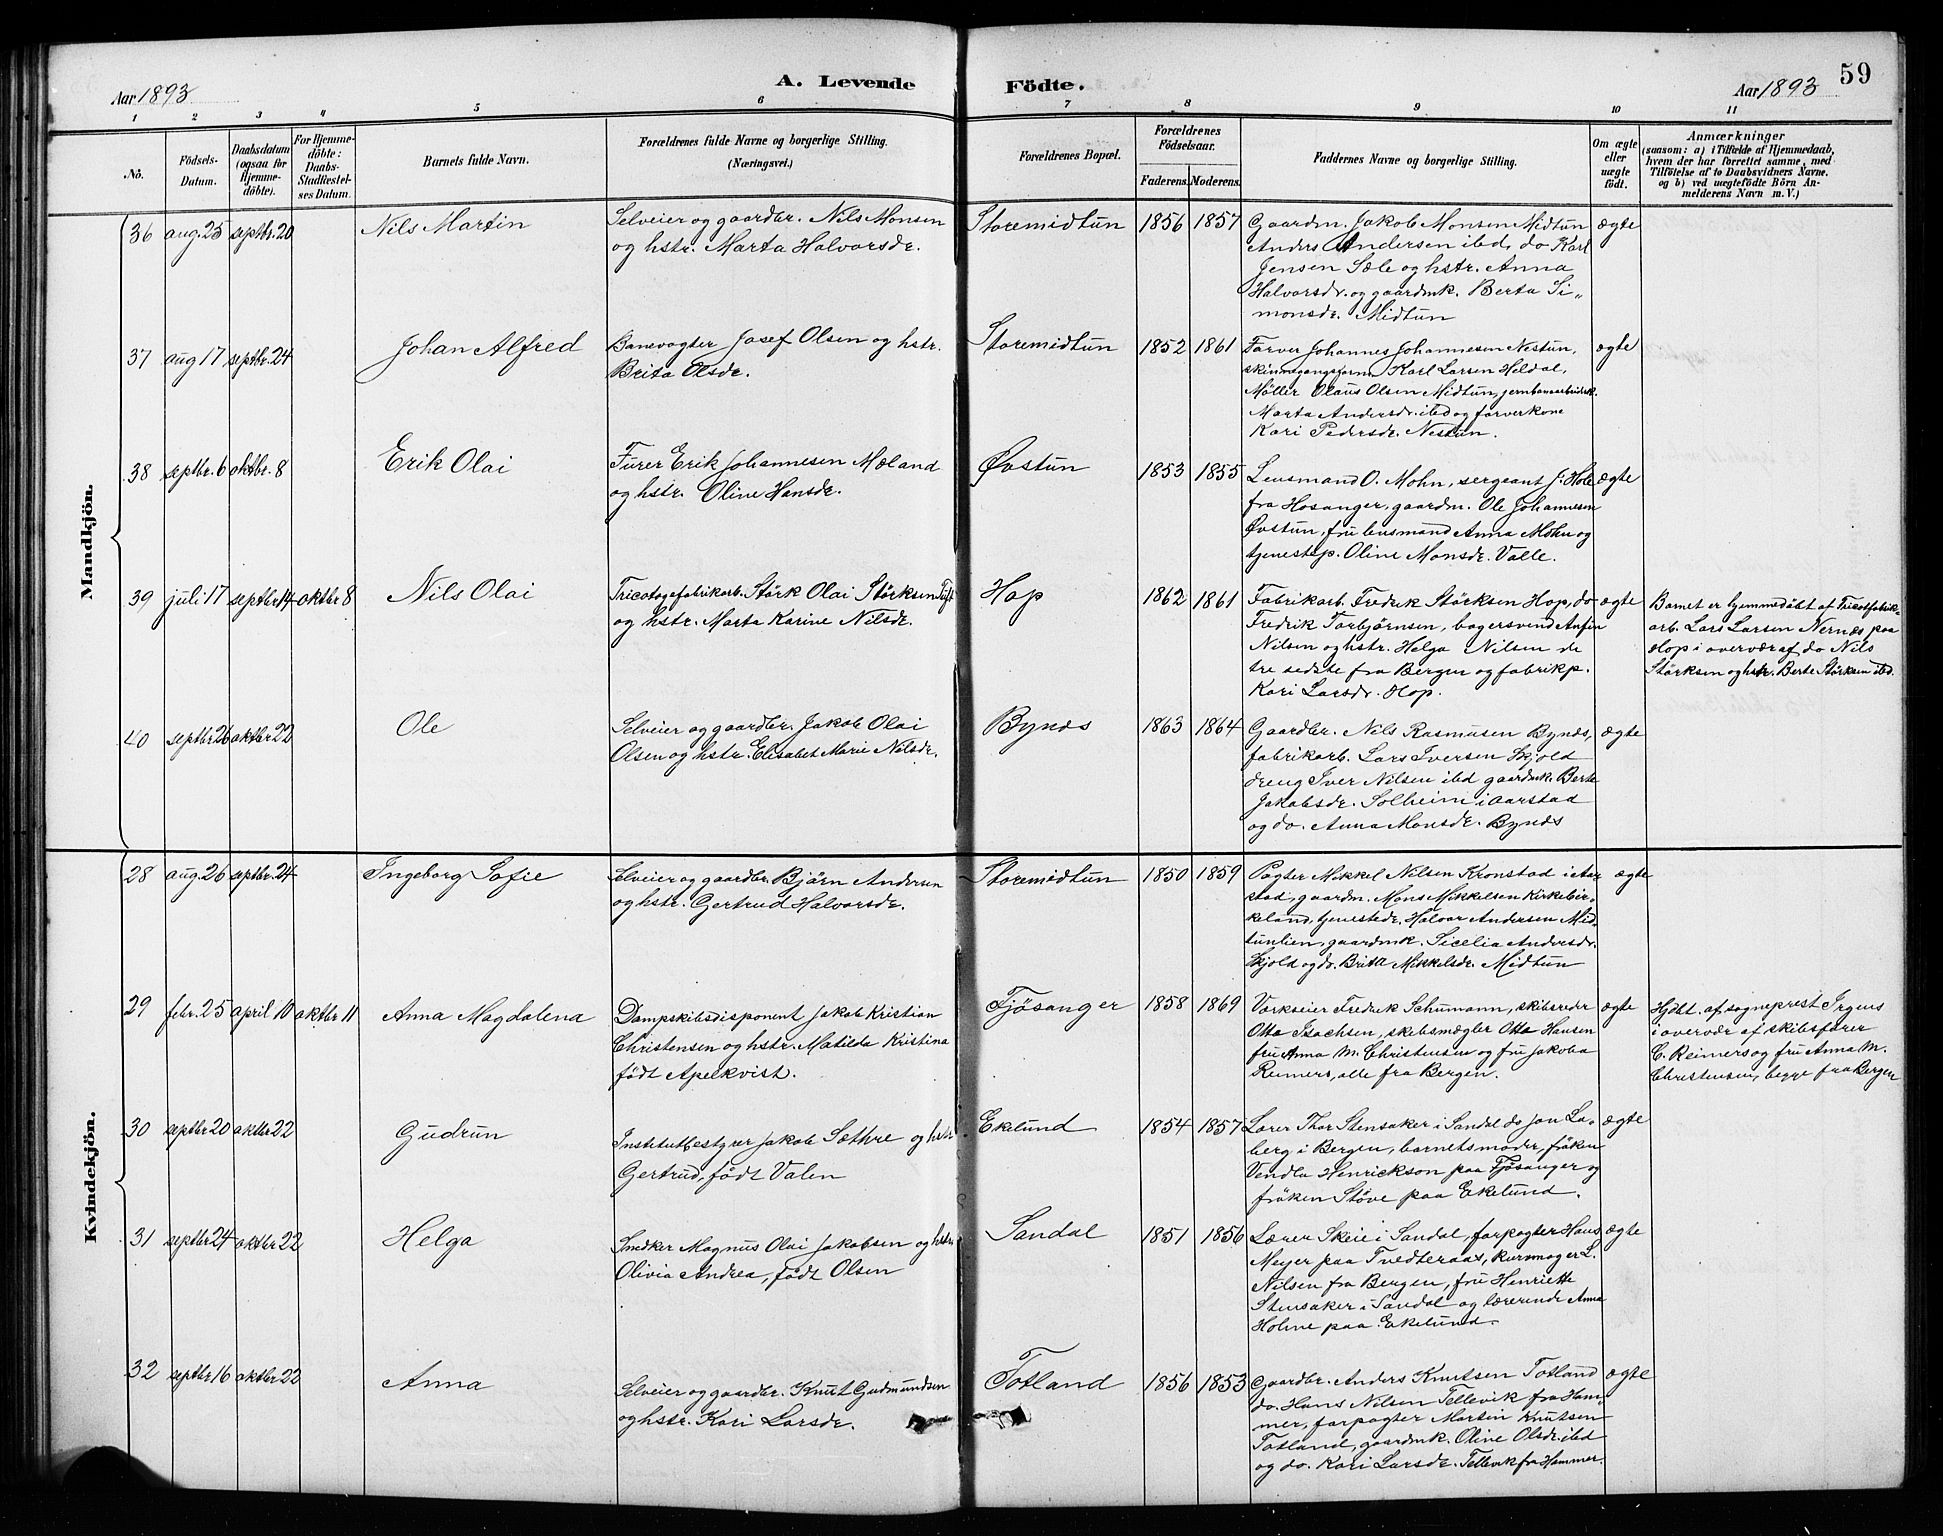 Aar 1893
A. Levende
Födte.
Aar 1893
59
1 2 3 4 5 6 7 8 9 10 11
No.
Födsels-
Datum.
Daabsdatum
(ogsaa for
Hjemme-
döbte).
For Hjemme-
döbte:
Daabs-
Stadfæstel-
ses Datum.
Barnets fulde Navn.
Forældrenes fulde Navne og borgerlige Stilling.
(Næringsvei.)
Forældrenes Bopæl.
Forældrenes
Födselsaar.
Faderens. Moderens.
Faddernes Navne og borgerlige Stilling.
Om ægte
eller
uægte
født.
Anmærkninger
(saasom: a) i Tilfælde af Hjemmedaab,
hvem der har forrettet samme, med
Tilføielse af to Daabsvidners Navne.
og b) ved uægtefödte Börn An-
melderens Navn m. V.)
Mandkjön.
36 aug. 25 septbr. 20 Nils Martin
Selveier og gaardbr. Nils Monsen
og hstr. Marta Halvorsdr.
Storemidtun 1856 1857
Gaardm. Jakob Monsen Midtun
Anders Andersen ibd, do Karl
Jensen Sæle og hstr. Anna
Halvorsdr. og gaardmk. Berta Si-
monsdr. Midtun
ægte
37 aug 17 septbr. 24 Johan Alfred
Banevogter Josef Olsen og hstr.
Brita Olsdr.
Storemidtun 1852 1861
Farver Johannes Johannesen Nestun,
Karl Larsen Heldal,
Møller Olaus Olsen Midtun, jernbanearbeidersk.
Marta Andersdr. ibd og farverkone
Kari Pedersdr. Nestun.
ægte
38 septbr. 6 oktbr. 8 Erik Olai
Furer Erik Johannesen Mæland
og hstr. Oline Hansdr.
Øvstun 1853 1855
Lensmand O. Mohn, sergeant J. Hole
fra Hosanger, gaardm. Ole Johannesen
Øvstun, fru lensmand Anna Mohn og
tjenestep. Oline Monsdr. Valle.
ægte
39 juli 17 septbr 14 oktbr 8 Nils Olai
Tricotagefabrikarb. Störk Olai Störksen
og hstr. Marta Karine Nilsdr.
Hop 1862 1861
Fabrikarb. Fredrik Störksen Hop, do
Fredrik Torbjörnsen, bagersvend Anfin
Nilsen og hstr. Helga Nilsen de
tre sidste fra Bergen og fabrikp.
Kari Larsdr. Hop.
ægte
Barnet er hjemmedöbt af Tricotfabrik-
arb. Lars Larsen Nernæs paa
Hop i overvær af do Nils
Störksen og hstr. Berte Störksen ibd.
40 septbr 26 oktbr 22 Ole
Selveier og gaardbr. Jakob Olai
Olsen og hstr. Elisabet Marie Nilsdr.
Bynæs 1863 1864
Gaardbr. Nils Rasmusen Bynæs,
fabrikarb. Lars Iversen Skjold
dreng Iver Nilsen ibd gaardmk. Berte
Jakobsdr. Solheim i Aarstad
og do. Anna Monsdr. Bynæs
ægte
Kvindekjön.
28 aug. 26 septbr. 24 Ingeborg Sofie
Selveier og gaardbr. Björn Andersen
og hstr. Gertrud Halvorsdr.
Storemidtun 1850 1859
Pagter Mikkel Nilsen Kronstad i Aar-
stad, gaardm. Mons Mikkelsen Kirkebir-
keland, tjenestedr. Halvor Andersen Mid-
tunlien, gaardmk. Sicelia Andersdr.
Skjold og do. Brita Mikkelsdr. Midtun
ægte
29 febr. 25 april 10 oktbr 11 Anna Magdalena
Dampskibsdisponent Jakob Kristian
Christensen og hstr. Matilda Kristina
födt Apelkvist.
Fjösanger 1858 1869
Værkseier Fredrik Schumann, skibsreder
Otto Isachsen, skibsmægler Otto Hansen
fru Anna M. Christensen og fru Jakoba
Reimers, alle fra Bergen.
ægte
Hjdbt. af sogneprest Irgens
i overvær af skibsfører
C. Reimers og fru Anna M.
Christensen, begge fra Bergen
30 septbr 20 oktbr 22 Gudrun
Institutbestyrer Jakob Sæthre og hstr
Gertrud, födt Valen
Ekelund 1854 1857
Lærer Thor Stensaker i Sandal do Jon La-
berg i Bergen, barnets moder, fröken
Vendla Henrickson paa Fjösanger og
fröken Støve paa Ekelund.
ægte
31 septbr 24 oktbr 22 Helga
Snedker Magnus Olai Jakobsen og hstr
Olivia Andrea, födt Olsen
Sandal 1851 1856
Lærer Skeie i Sandal, forpagter Hans
Meyer paa Tvedteraas, kurvmager L.
Nilsen fra Bergen, fru Henriette
Stensaker i Sandal og lærerinde Anna
Holme paa Ekelund.
ægte
32 septbr 16 oktbr 22 Anna
Selveier og gaardbr. Knut Gudmundsen
og hstr. Kari Larsdr.
Totland 1856 1853
Gaardbr. Anders Knutsen Totland
do. Hans Nilsen Tellevik fra Ham-
mer, forpagter Martin Knutsen
Totland, gaardmk. Oline Olsdr. ibd
og do. Kari Larsdr. Tellevik fra Hammer.
ægte